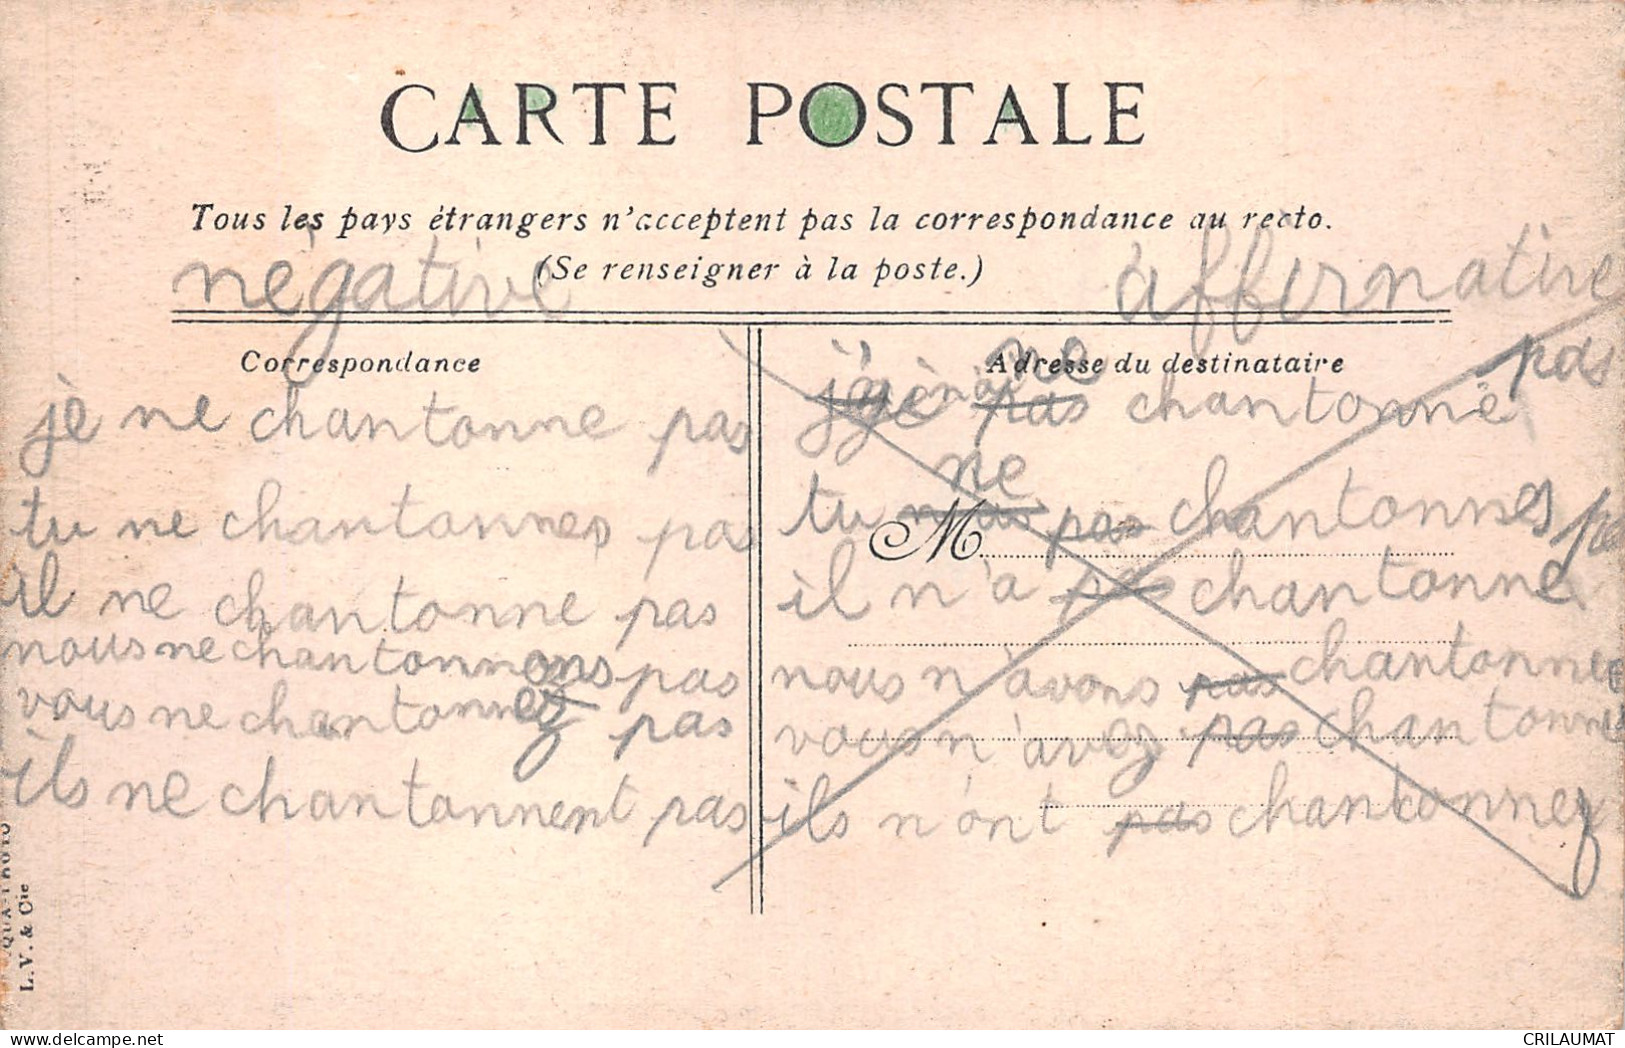 CARTE POSTALE
Tous les pays étrangers n'acceptent pas la correspondance au recto.
(Se renseigner à la poste.)
négative
affirmative
Correspondance
Adresse du destinataire
je ne chantonne pas
tu ne chantonnes pas
il ne chantonne pas
nous ne chantonnons pas
vous ne chantonnez pas
ils ne chantonnent pas
ne pas
pas chantonné
ne
tu pas chantonnes
M
il n'a pas chantonne
nous n'avons pas chantonne
vous n'avez pas chantonne
ils n'ont pas chantonnez
L.V. & Cie
CRILAUMAT